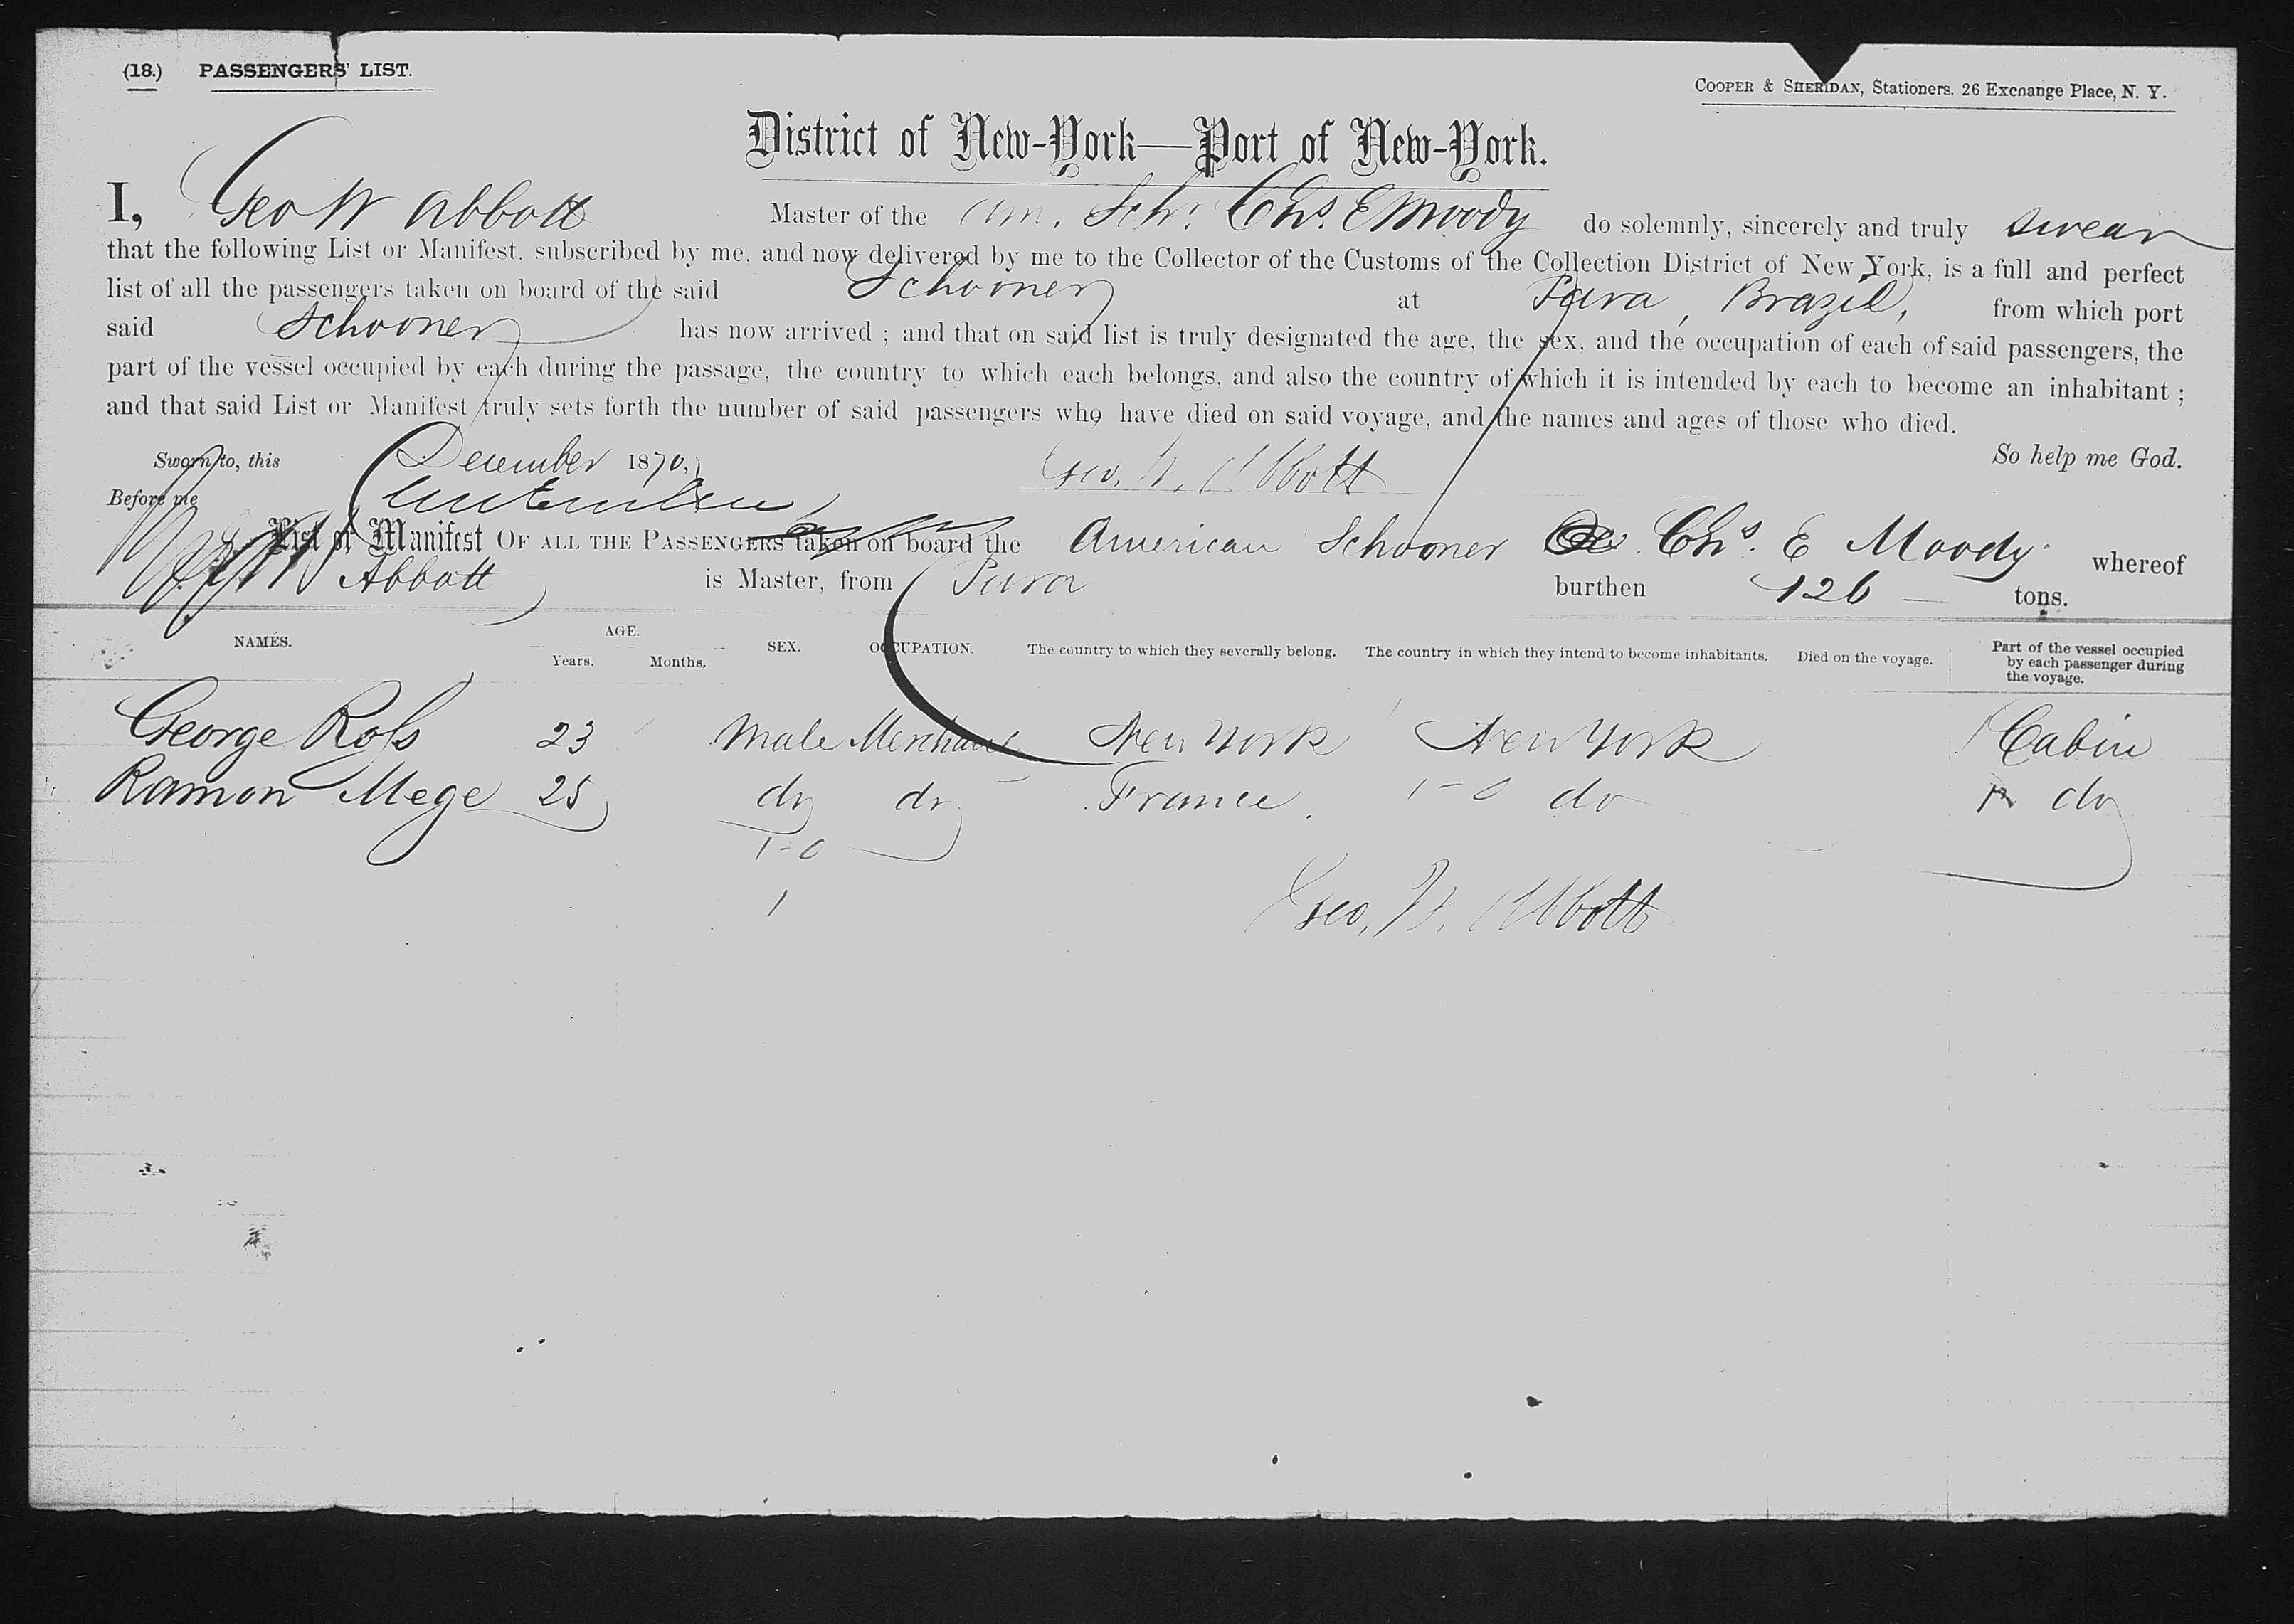 (18.) PASSENGERS' LIST.
COOPER & SHERIDAN, Stationers. 26 Exchange Place, N. Y.
District of New-York—Port of New-York.
I, Geo W Abbott Master of the Am. Schr. Chs. E Moody do solemnly, sincerely and truly swear
that the following List or Manifest, subscribed by me, and now delivered by me to the Collector of the Customs of the Collection District of New York, is a full and perfect
list of all the passengers taken on board of the said Schooner at Para, Brazil, from which port
said Schooner has now arrived ; and that on said list is truly designated the age, the sex, and the occupation of each of said passengers, the
part of the vessel occupied by each during the passage, the country to which each belongs, and also the country of which it is intended by each to become an inhabitant ;
and that said List or Manifest truly sets forth the number of said passengers who have died on said voyage, and the names and ages of those who died.
So help me God.
Sworn to, this December 1870, Geo. W. Abbott
Before me
List or Manifest OF ALL THE PASSENGERS taken on board the American Schooner Chs. E Moody whereof
Abbott is Master, from Para burthen 126 tons.
NAMES. AGE. Years. Months. SEX. OCCUPATION. The country to which they severally belong. The country in which they intend to become inhabitants. Died on the voyage. Part of the vessel occupied by each passenger during the voyage.
George Ross 23 Male Merchant New York New York Cabin
Ramon Mege 25 do do France 1-0 do do
1-0
1
Geo. W. Abbott